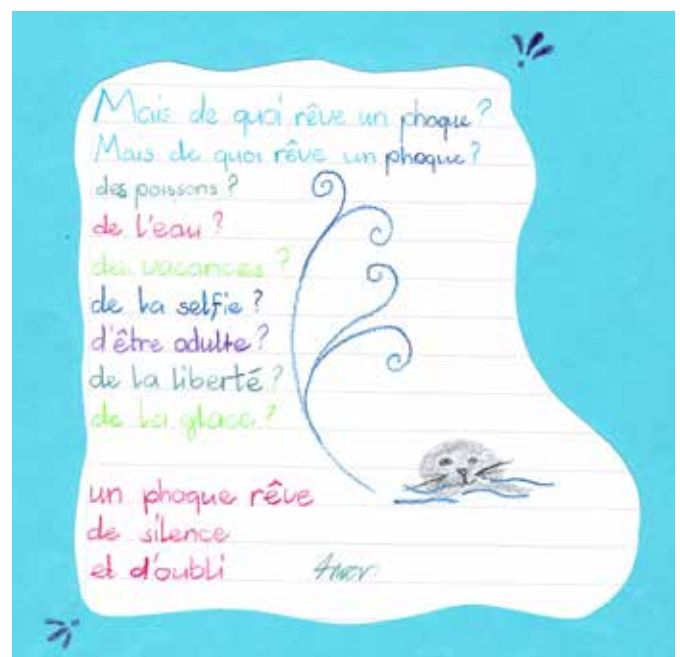 Mais de quoi rêve un phoque ?
Mais de quoi rêve un phoque ?
des poissons ?
de l'eau ?
des vacances ?
de la selfie ?
d'être adulte ?
de la liberté ?
de la glace ?
un phoque rêve
de silence
et d'oubli